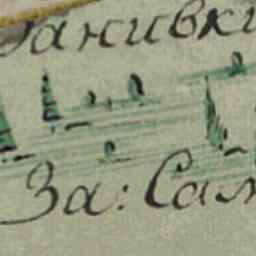 Ганивки
За: Сал